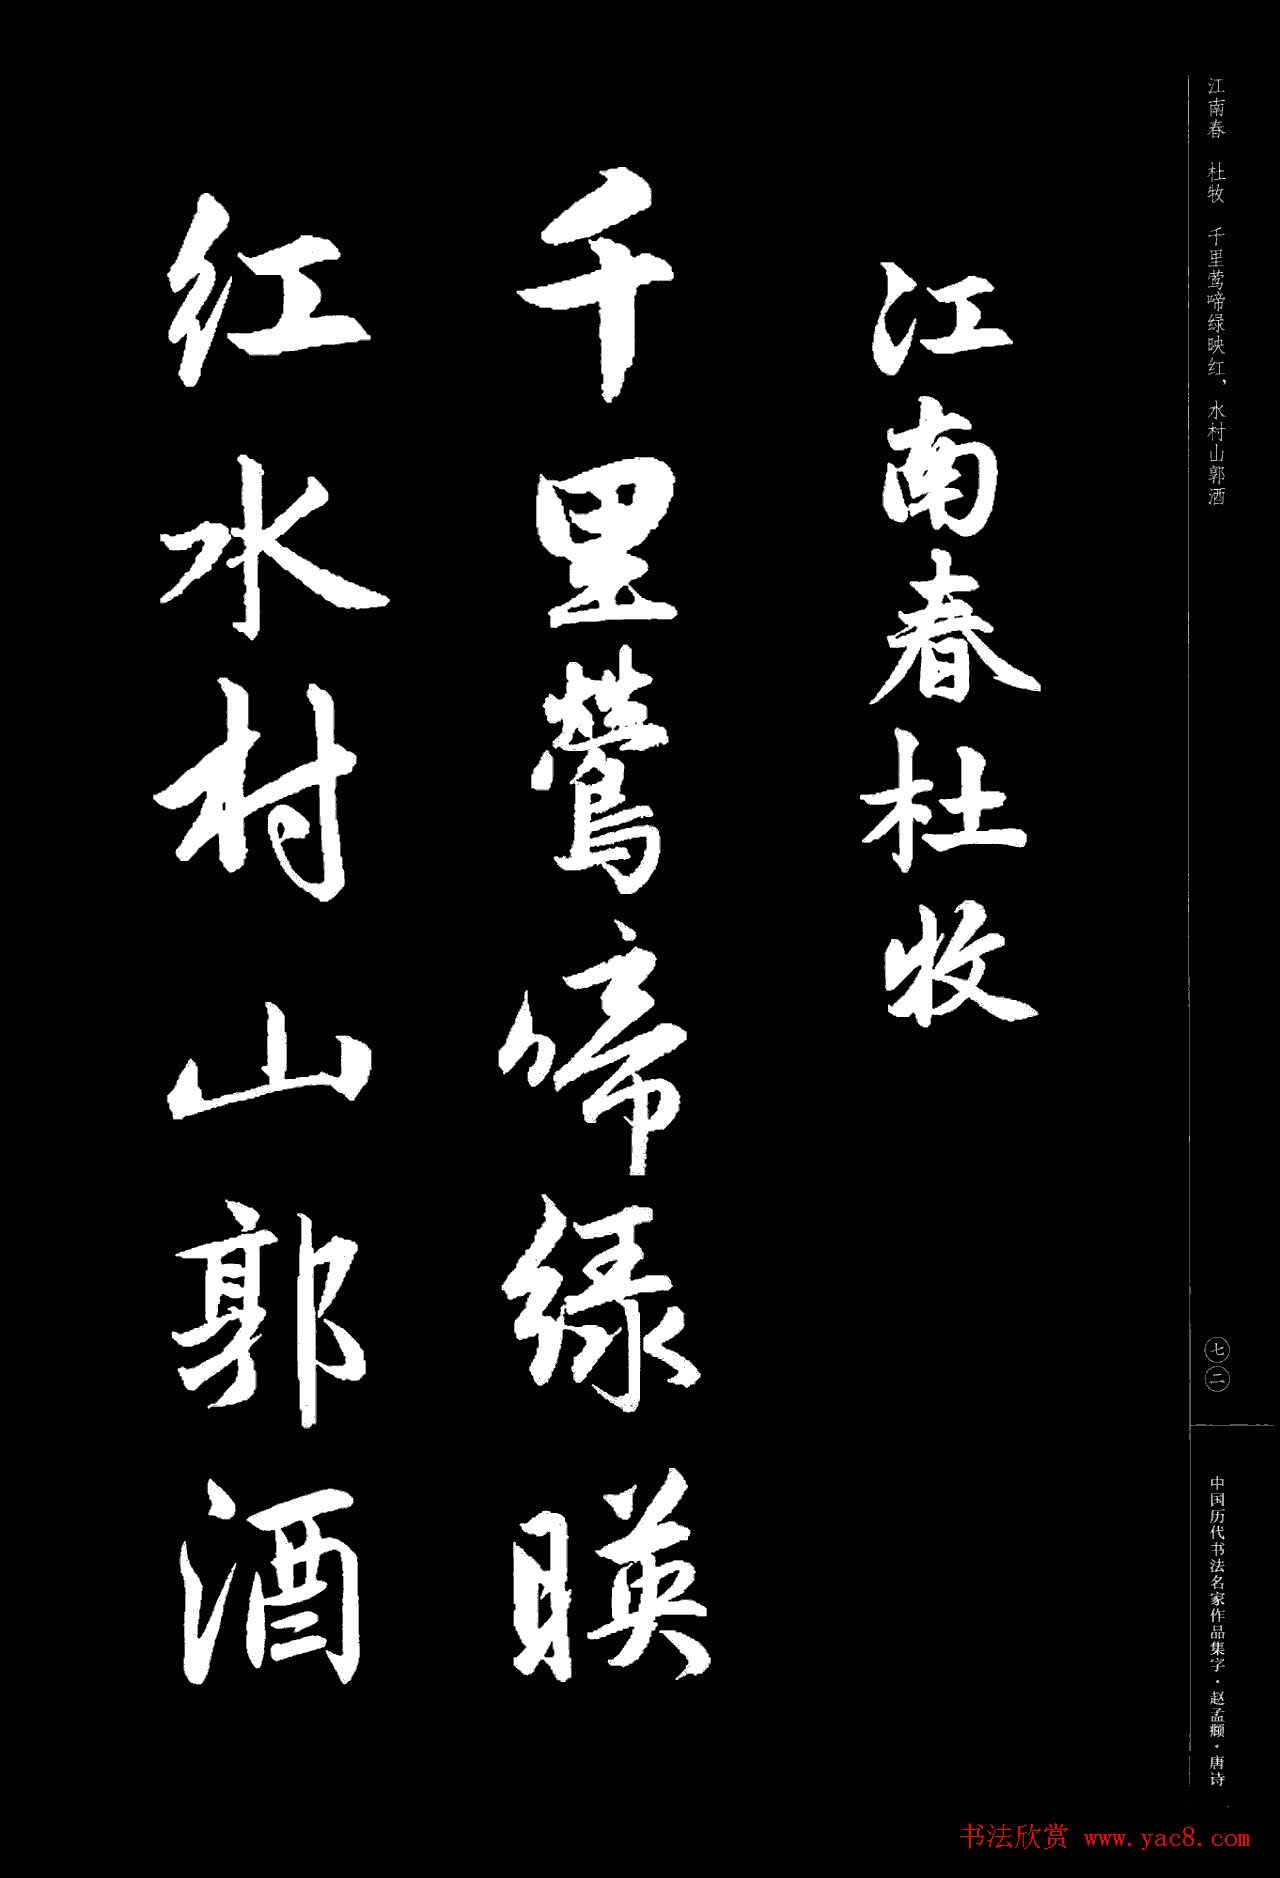 江南春 杜牧 千里莺啼绿映红，水村山郭酒
江南春杜牧
千里鶯啼緑暎
红水村山郭酒
七二
中国历代书法名家作品集字·赵孟頫·唐诗
书法欣赏 www.yac8.com